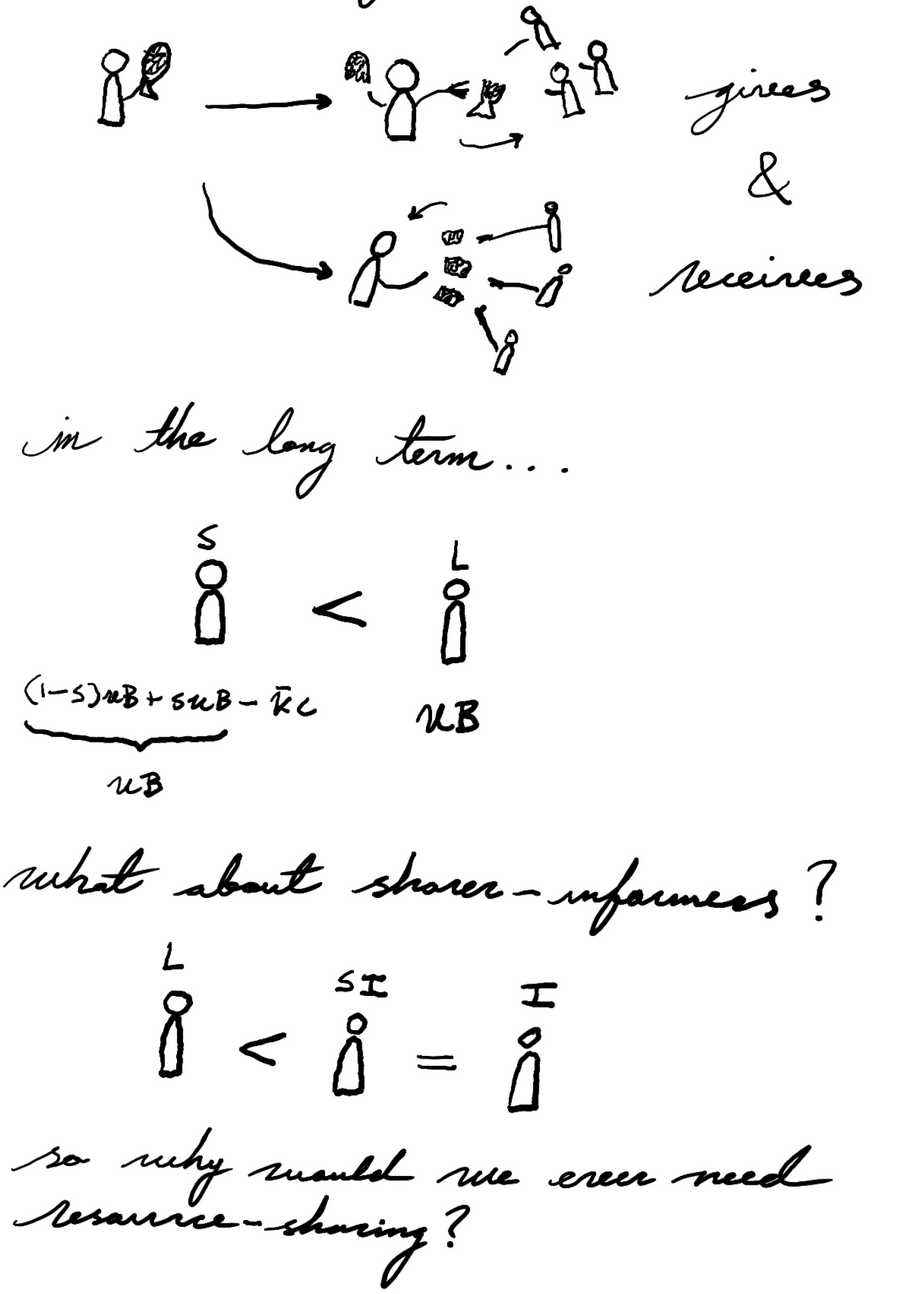 gives
&
receives
in the long term...
S < L
(1-s)uB + suB - k̄c
uB
uB
what about sharer-informers?
L < SI = I
so why would we ever need
resource-sharing?